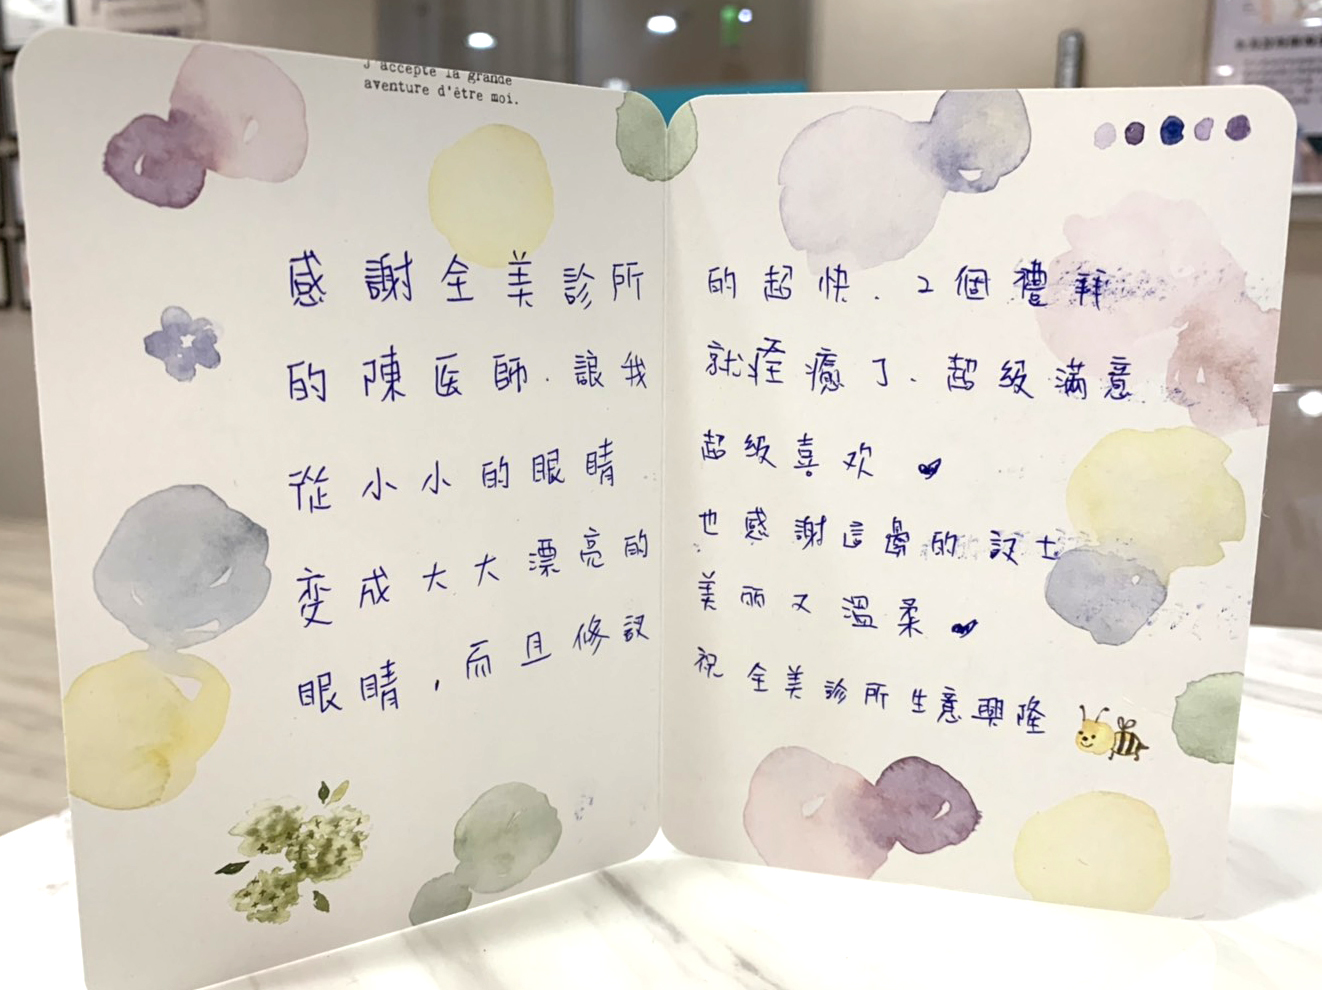 J'accepte la grande
aventure d'être moi.
感謝全美診所
的陳医師.讓我
從小小的眼睛
变成大大漂亮的
眼睛,而且修护
的超快.2個禮拜
就痊癒了.超级滿意
超级喜欢
也感謝這邊的护士
美丽又溫柔
祝全美診所生意興隆